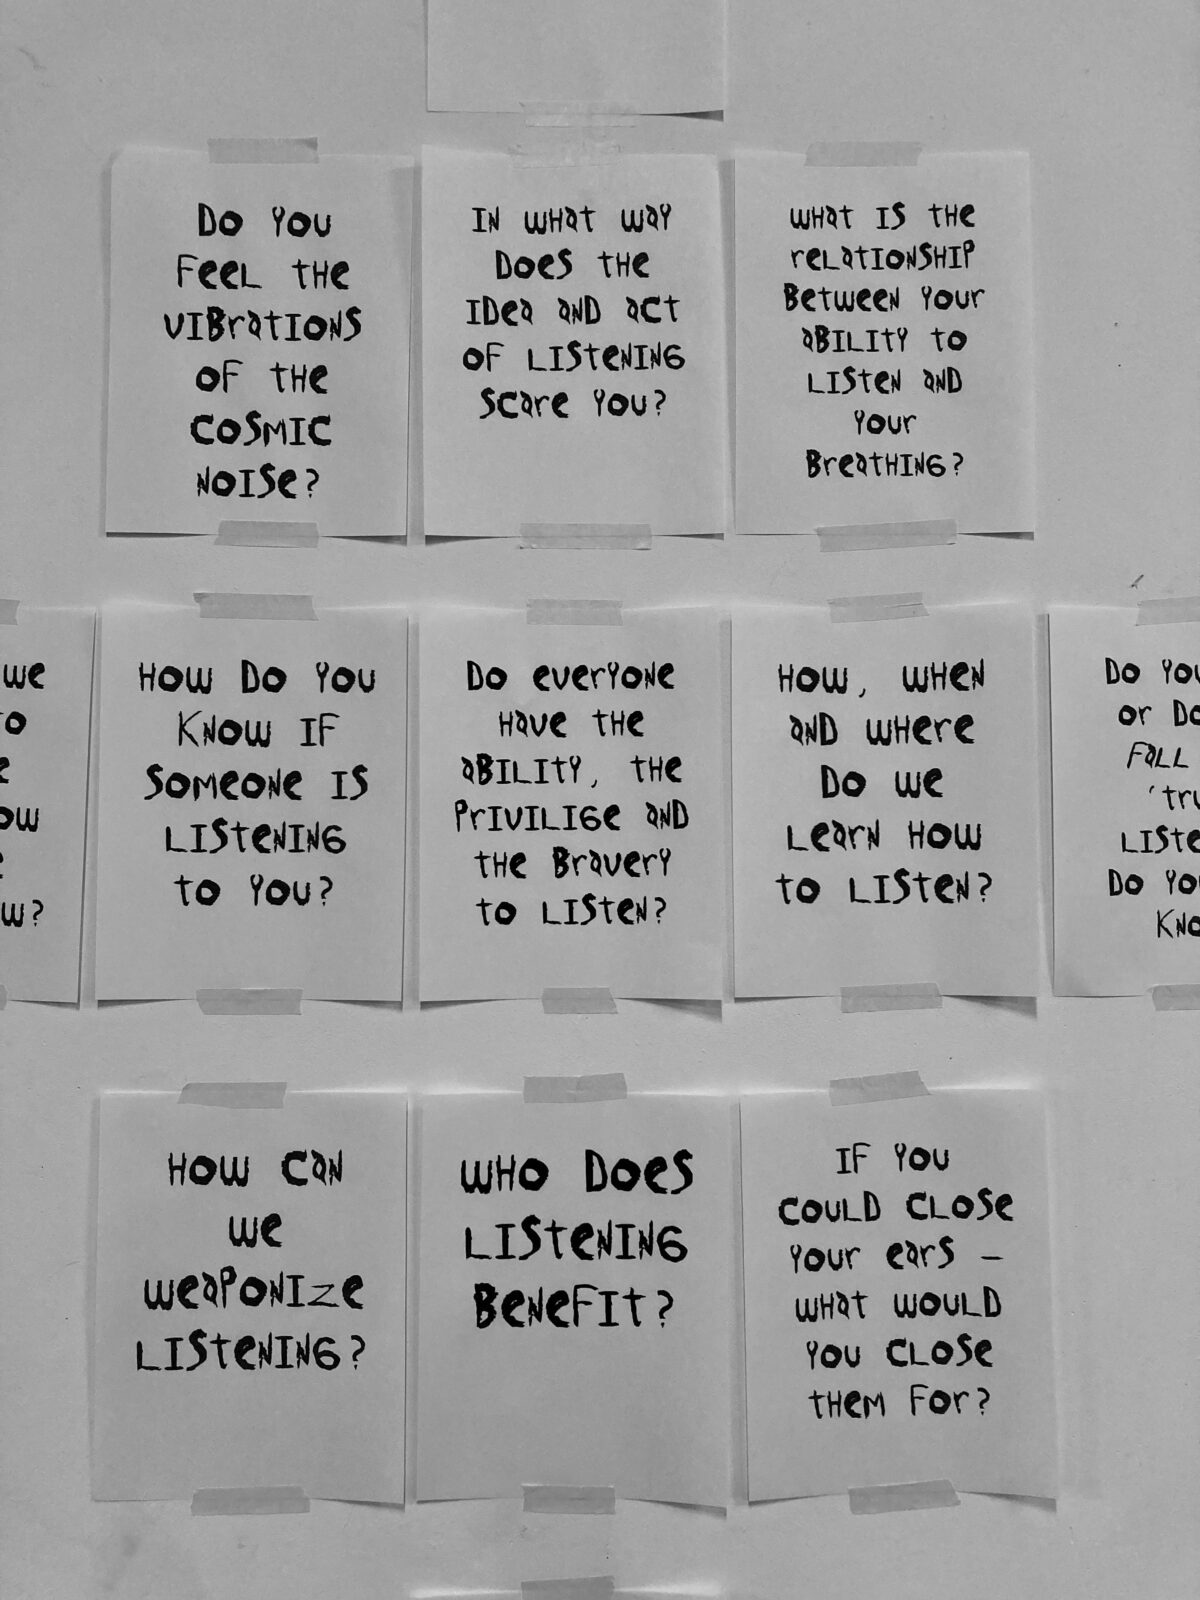 Do You
Feel the
vibrations
of the
cosmic
noise?
In what way
does the
idea and act
of listening
scare you?
What is the
relationship
between your
ability to
listen and
your
breathing?
we
How do you
know if
someone is
listening
to you?
Do everyone
have the
ability, the
privilige and
the bravery
to listen?
How, when
and where
do we
learn how
to listen?
Do
or
fall
Do
How can
we
weaponize
listening?
Who does
listening
benefit?
If you
could close
your ears –
what would
you close
them for?